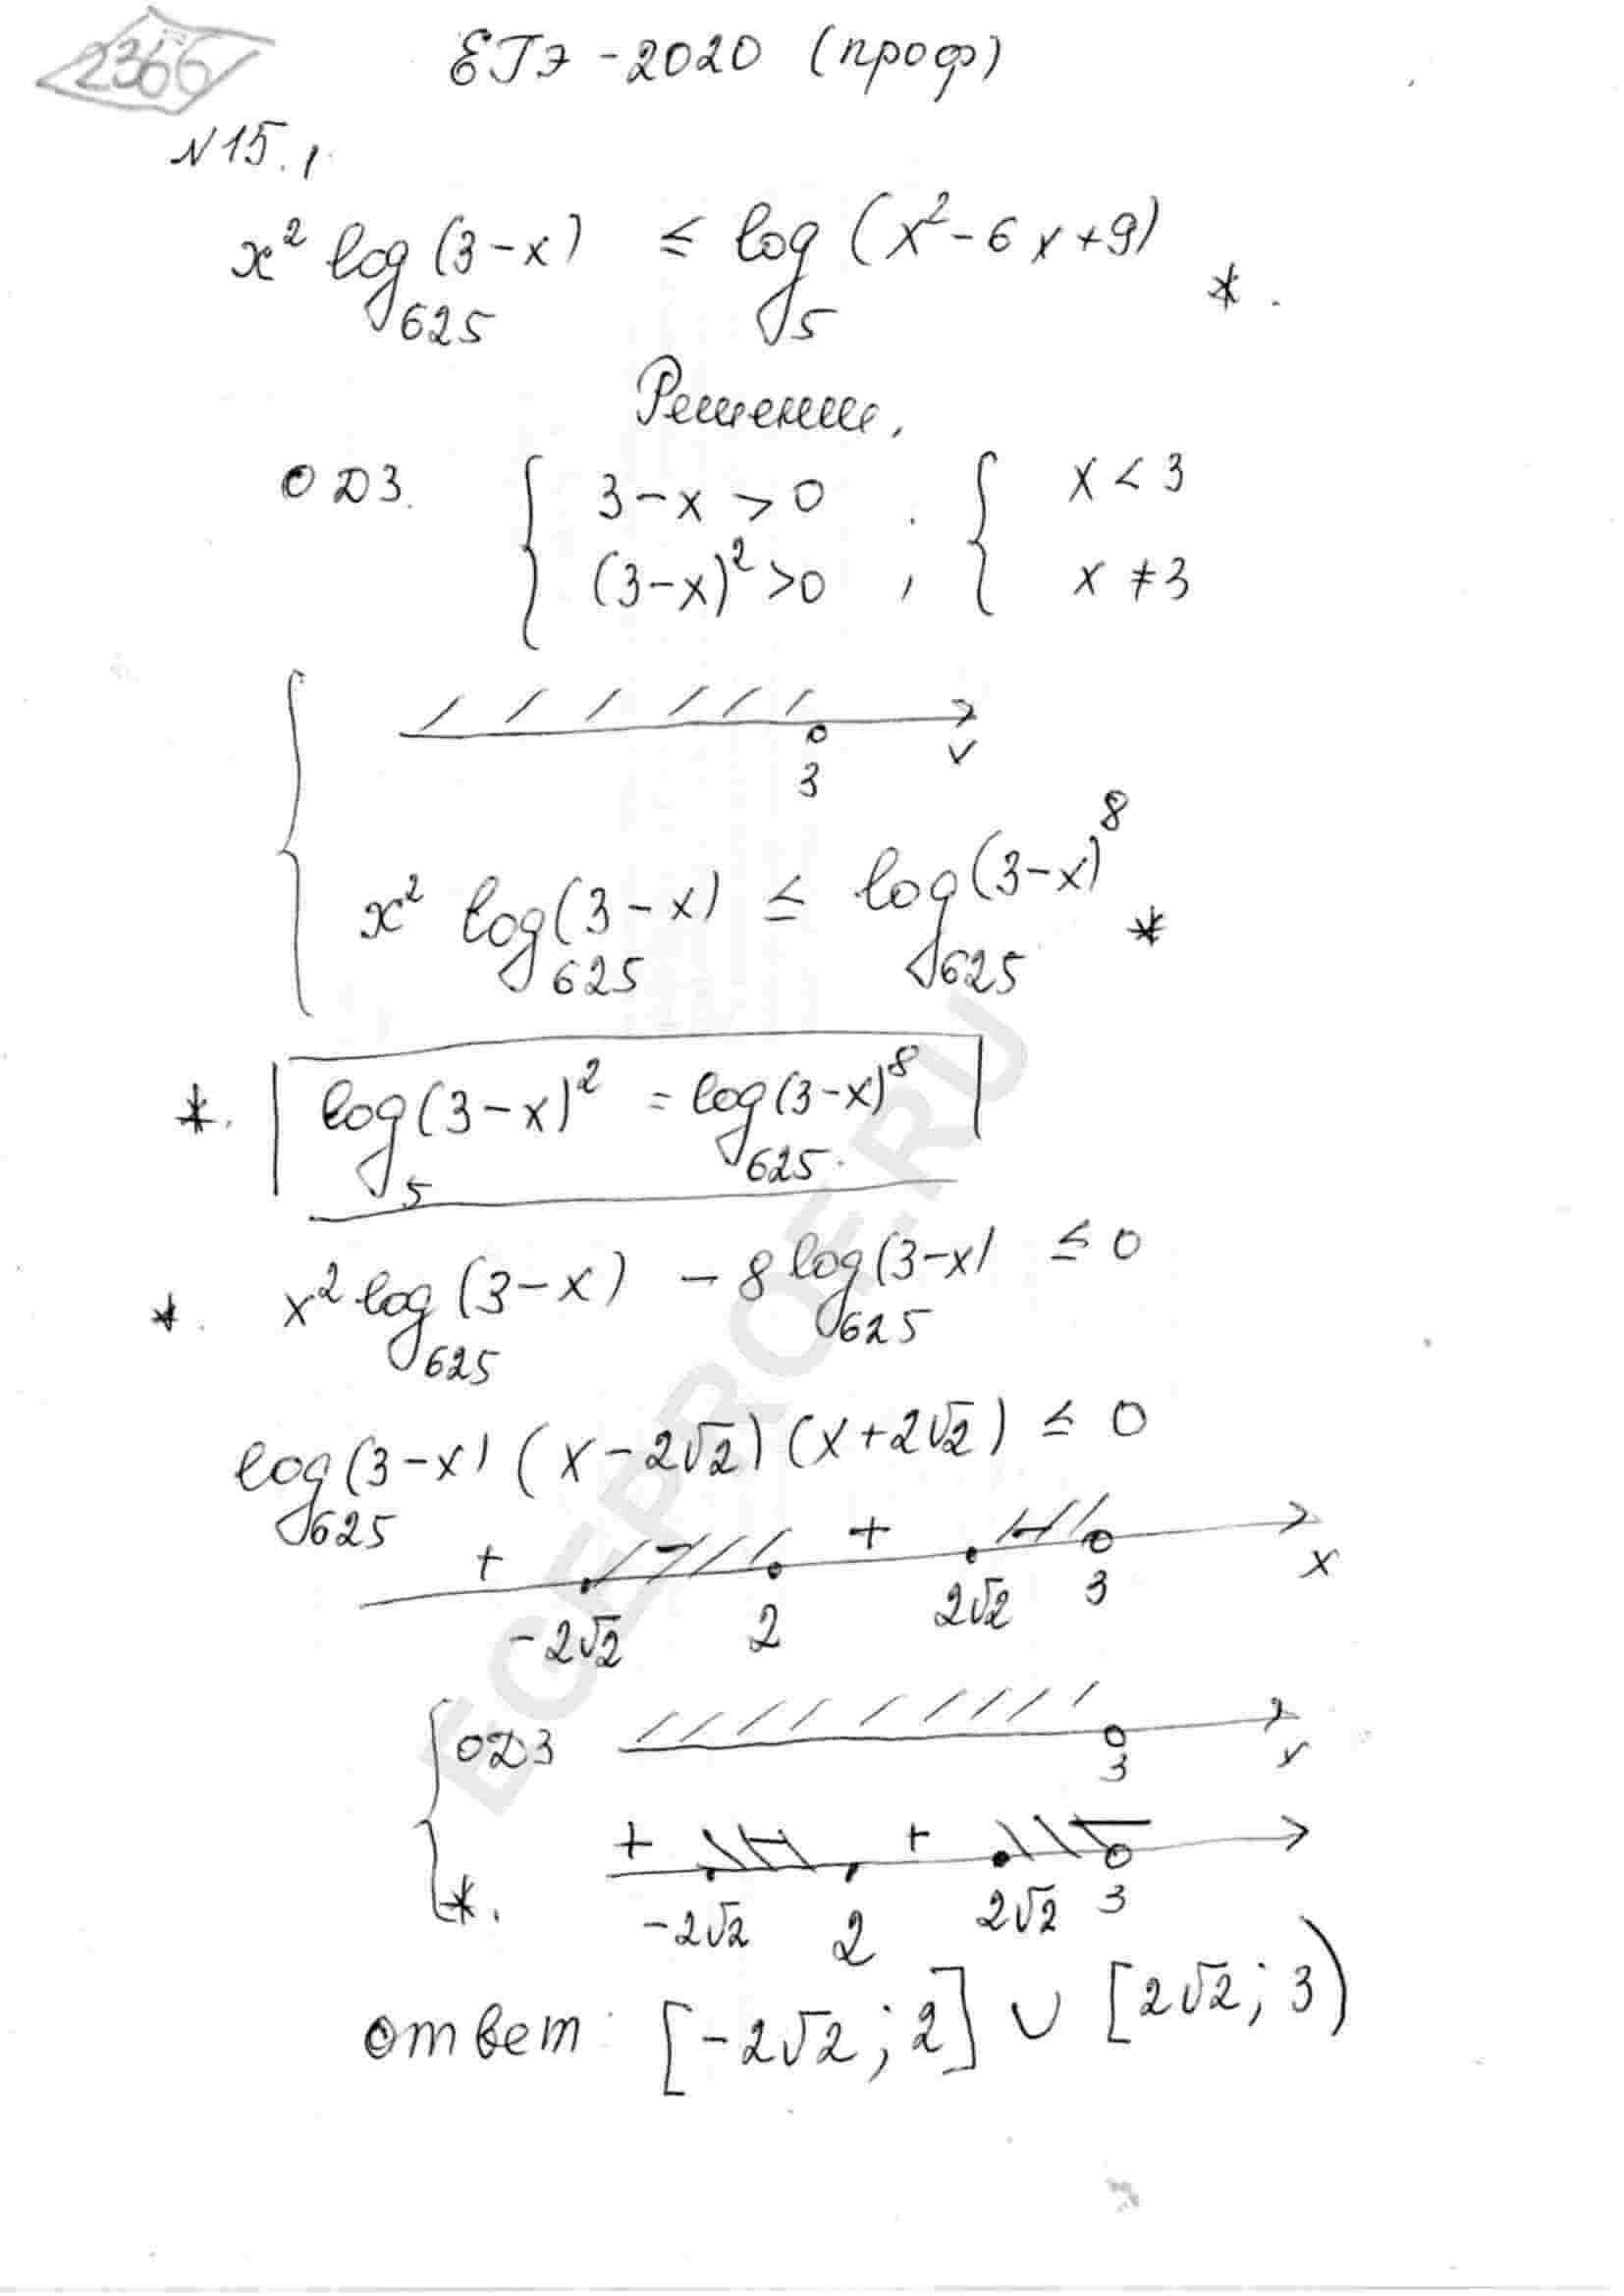 2366
ЕГЭ - 2020 (проф)
N15.1
x² log₆₂₅(3-x) ≤ log₅(x²-6x+9) *.
Решение,
ОДЗ. { 3-x > 0 ; { x < 3
(3-x)² >0 , x ≠ 3
3 x
x² log₆₂₅(3-x) ≤ log₆₂₅(3-x)⁸ *
*. log₅(3-x)² = log₆₂₅(3-x)⁸
*. x² log₆₂₅(3-x) - 8 log₆₂₅(3-x) ≤ 0
log₆₂₅(3-x) (x-2√2) (x+2√2) ≤ 0
+ - + -
-2√2 2 2√2 3 x
ОДЗ 3 x
+ - + -
*. -2√2 2 2√2 3
ответ: [-2√2; 2] ∪ [2√2; 3)
EGEPROF.RU